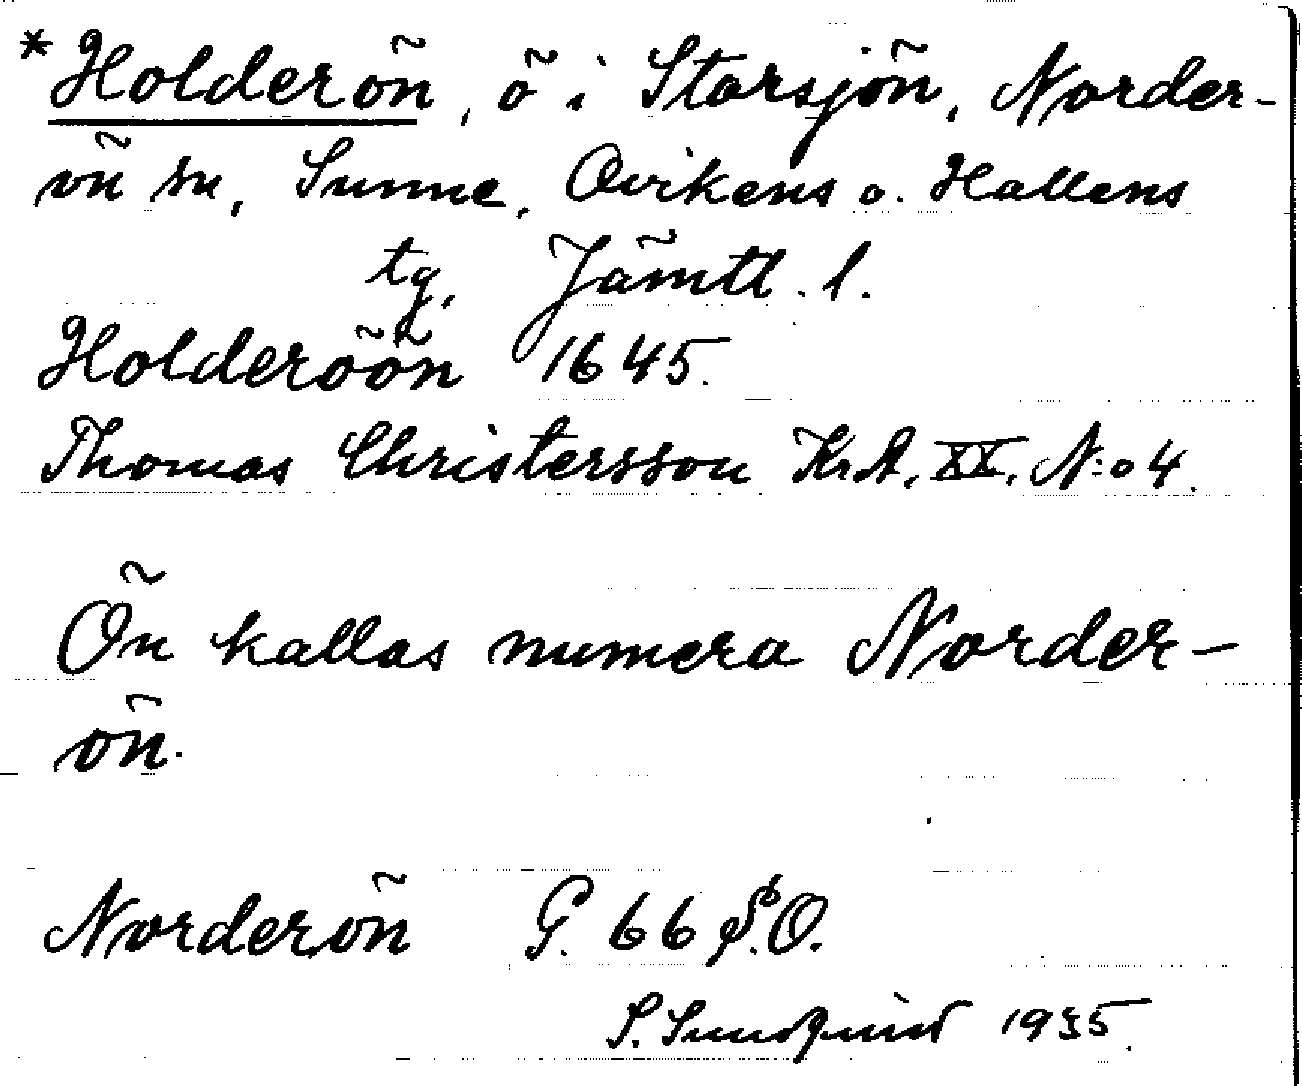 *Holderön, ö i Storsjön, Norder-
ön sn, Sunne, Ovikens o. Hallens
tg, Jämtl. l.
Holderöön 1645.
Thomas Christersson KrA. XX. N:o 4.
Ön kallas numera Norder-
ön.
Norderön G. 66 S.O.
S. Sundquist 1935.